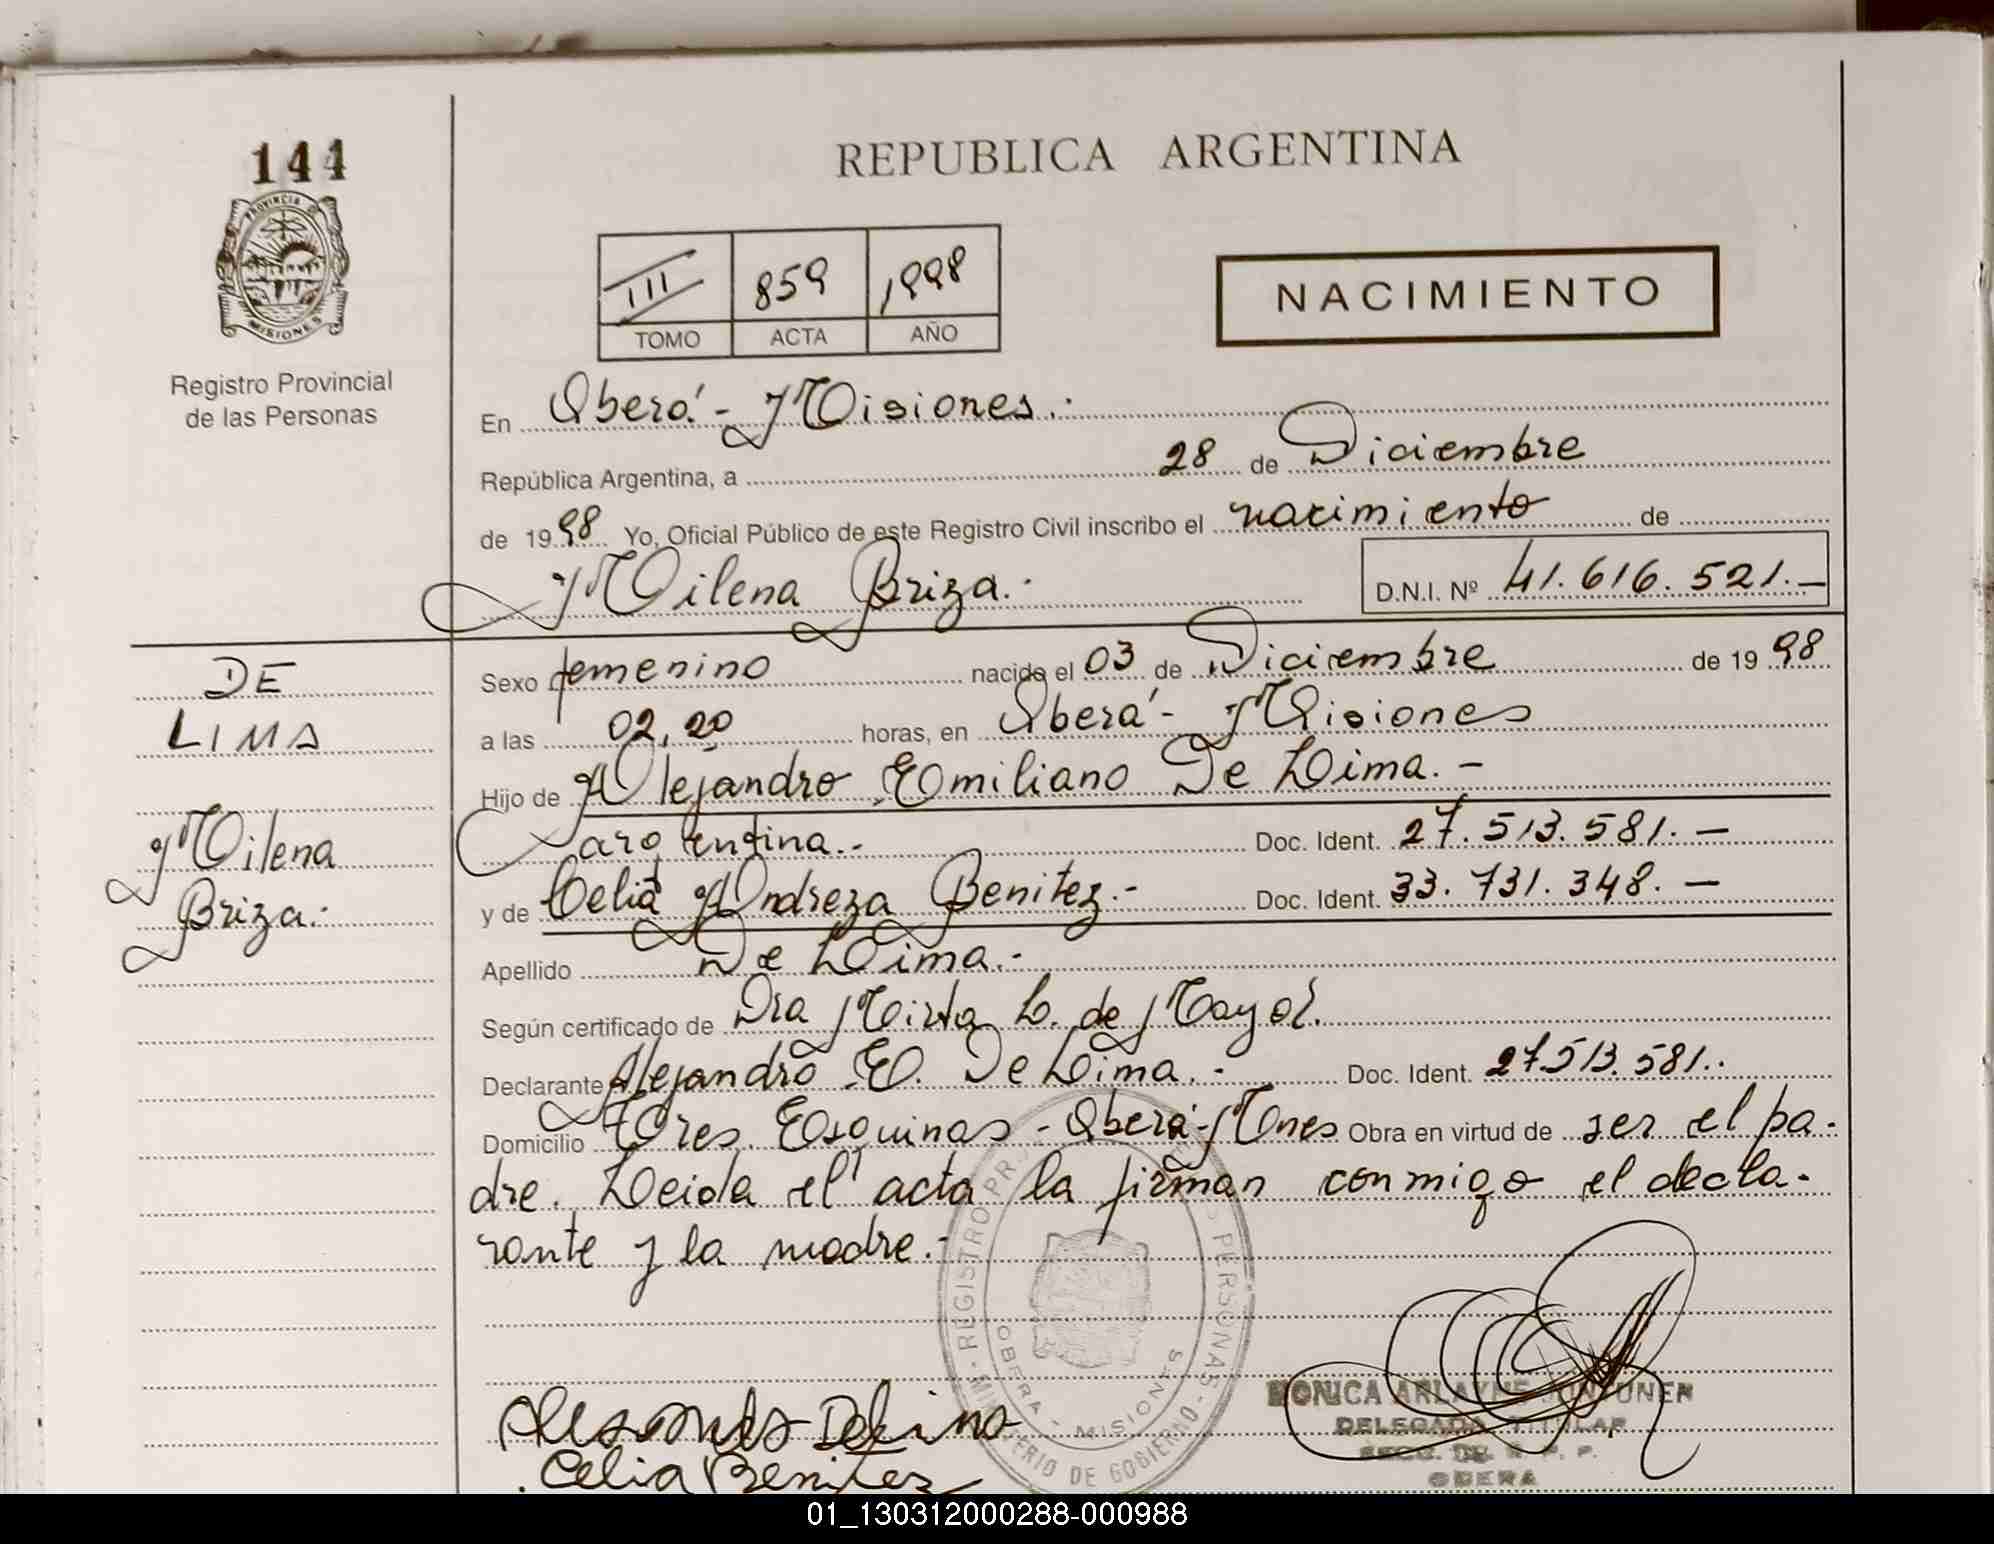 144
PROVINCIA DE
MISIONES
Registro Provincial
de las Personas
REPUBLICA ARGENTINA
III 859 1998
TOMO ACTA AÑO
NACIMIENTO
En Oberá - Misiones.-
República Argentina, a 28 de Diciembre
de 1998 Yo, Oficial Público de este Registro Civil inscribo el nacimiento de
Milena Briza.- D.N.I. Nº 41.616.521.-
DE
LIMA
Milena
Briza.-
Sexo femenino nacido el 03 de Diciembre de 1998
a las 02,20 horas, en Oberá - Misiones
Hijo de Alejandro Emiliano De Lima.-
argentina.- Doc. Ident. 27.513.581.-
y de Celia Andreza Benitez.- Doc. Ident. 33.731.348.-
Apellido De Lima.-
Según certificado de Dra Mirta L. de Mayol.
Declarante Alejandro E. De Lima.- Doc. Ident. 27.513.581..
Domicilio Tres Esquinas - Oberá - Mnes Obra en virtud de ser el pa-
dre. Leida el acta la firman conmigo el decla-
rante y la madre.-
REGISTRO PERSONAS - MINISTERIO DE GOBIERNO
OBERA - MISIONES
MONICA
DELEGADA TITULAR
OBERA
Celia Benitez
01_130312000288-000988